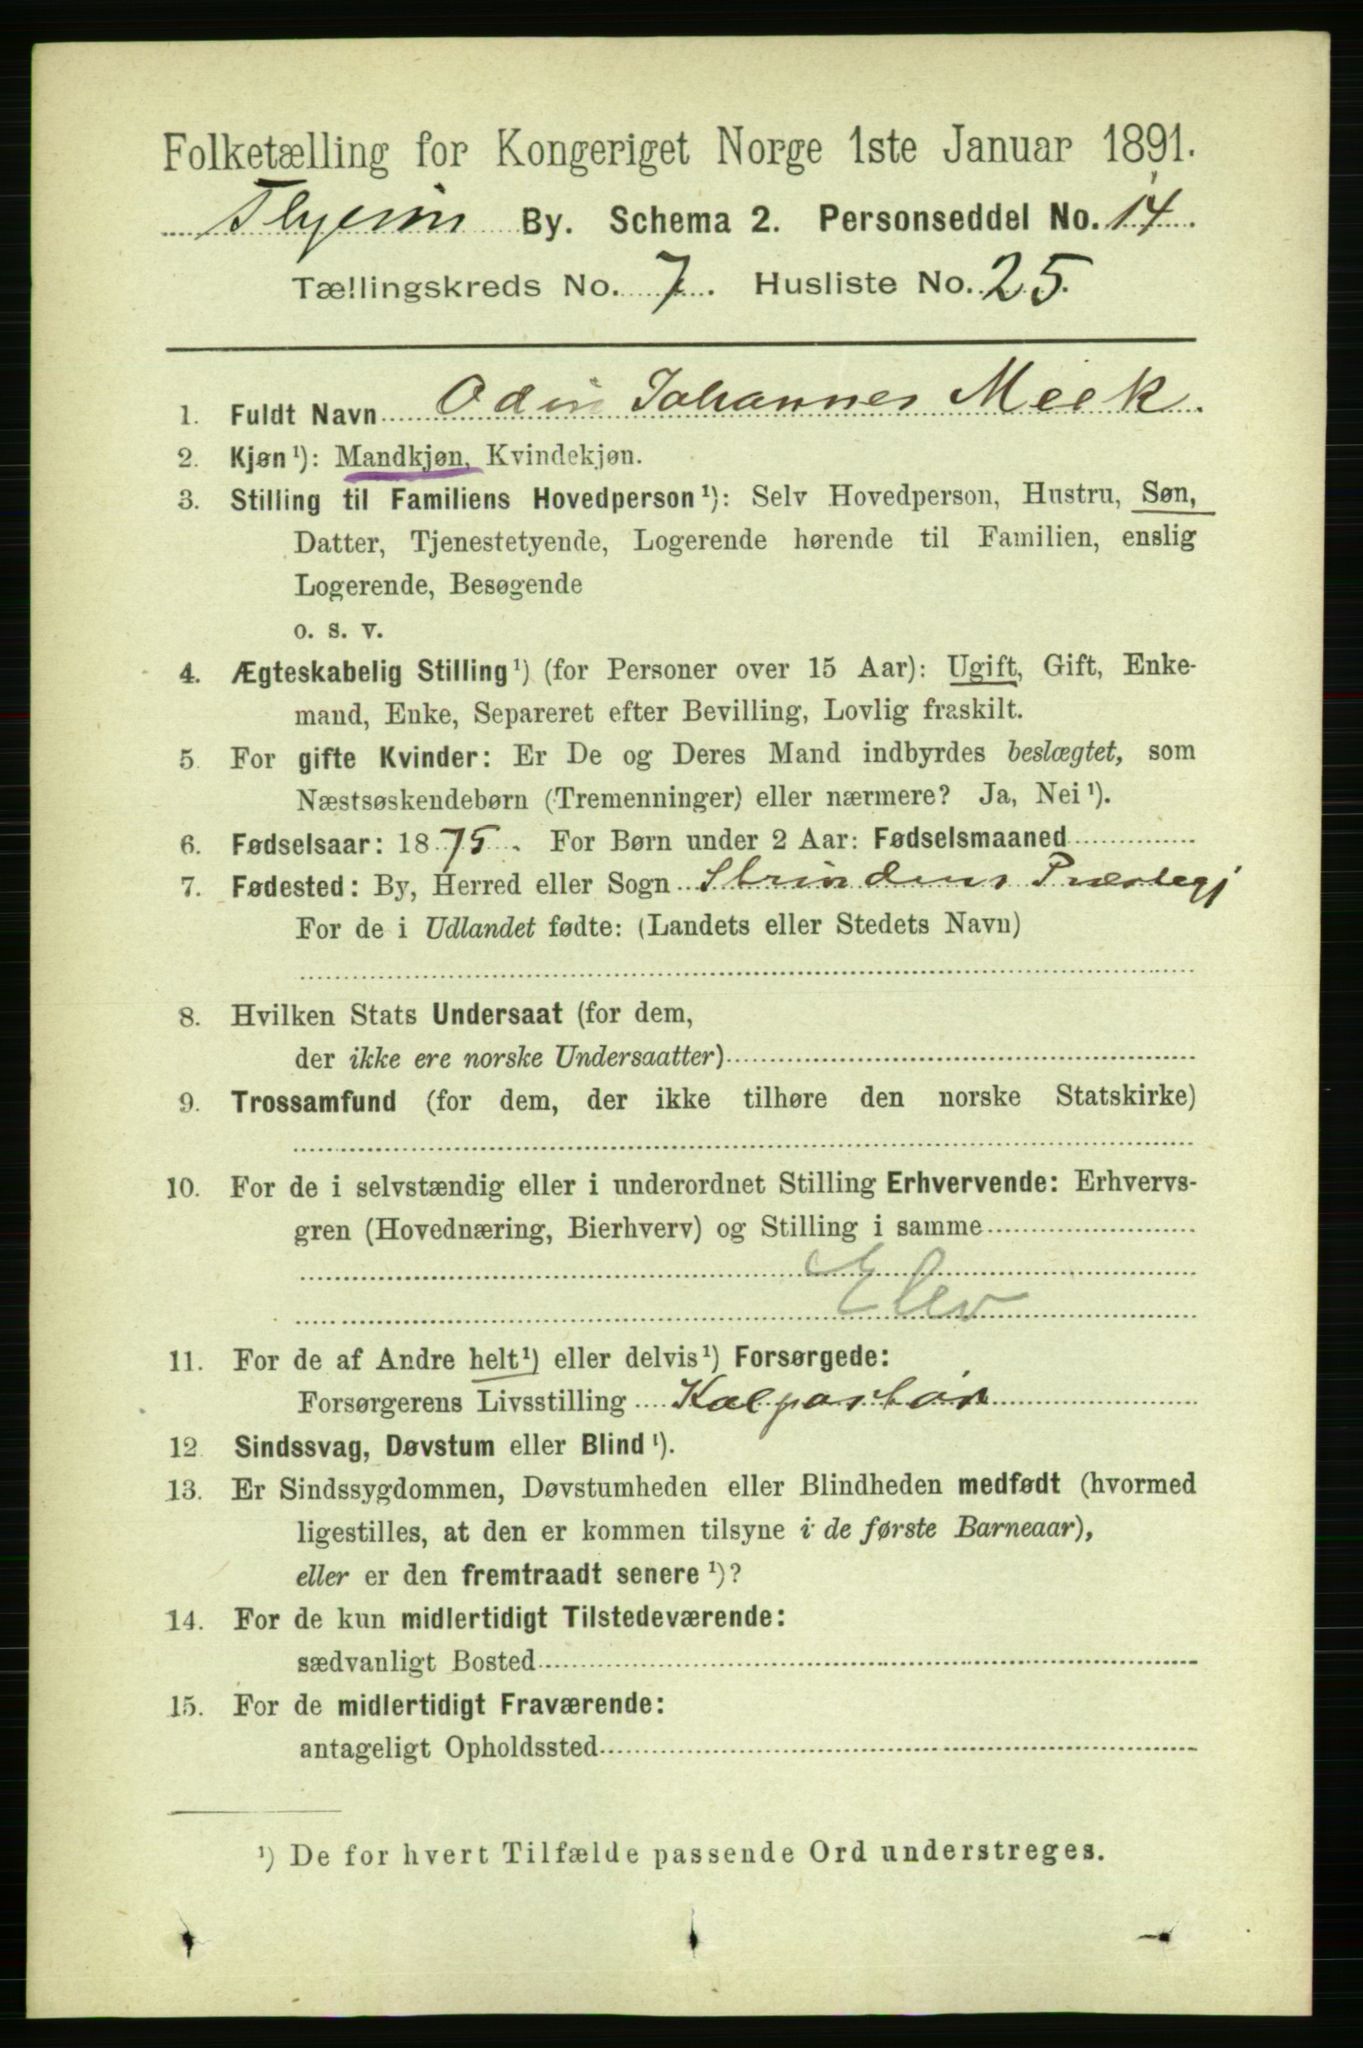 Folketælling for Kongeriget Norge 1ste Januar 1891.
By. Schema 2. Personseddel No. 14.
Tællingskreds No. 7. Husliste No. 25.
1. Fuldt Navn Odin Johannes Meek.
2. Kjøn¹): Mandkjøn, Kvindekjøn.
3. Stilling til Familiens Hovedperson¹): Selv Hovedperson, Hustru, Søn,
Datter, Tjenestetyende, Logerende hørende til Familien, enslig
Logerende, Besøgende
o. s. v.
4. Ægteskabelig Stilling¹) (for Personer over 15 Aar): Ugift, Gift, Enke-
mand, Enke, Separeret efter Bevilling, Lovlig fraskilt.
5. For gifte Kvinder: Er De og Deres Mand indbyrdes beslægtet, som
Næstsøskendebørn (Tremenninger) eller nærmere? Ja, Nei¹).
6. Fødselsaar: 1875. For Børn under 2 Aar: Fødselsmaaned
7. Fødested: By, Herred eller Sogn Strindens Præstegj
For de i Udlandet fødte: (Landets eller Stedets Navn)
8. Hvilken Stats Undersaat (for dem,
der ikke ere norske Undersaatter)
9. Trossamfund (for dem, der ikke tilhøre den norske Statskirke)
10. For de i selvstændig eller i underordnet Stilling Erhvervende: Erhvervs-
gren (Hovednæring, Bierhverv) og Stilling i samme
Elev
11. For de af Andre helt¹) eller delvis¹) Forsørgede:
Forsørgerens Livsstilling Kolportør
12 Sindssvag, Døvstum eller Blind¹).
13. Er Sindssygdommen, Døvstumheden eller Blindheden medfødt (hvormed
ligestilles, at den er kommen tilsyne i de første Barneaar),
eller er den fremtraadt senere¹)?
14. For de kun midlertidigt Tilstedeværende:
sædvanligt Bosted
15. For de midlertidigt Fraværende:
antageligt Opholdssted
¹) De for hvert Tilfælde passende Ord understreges.